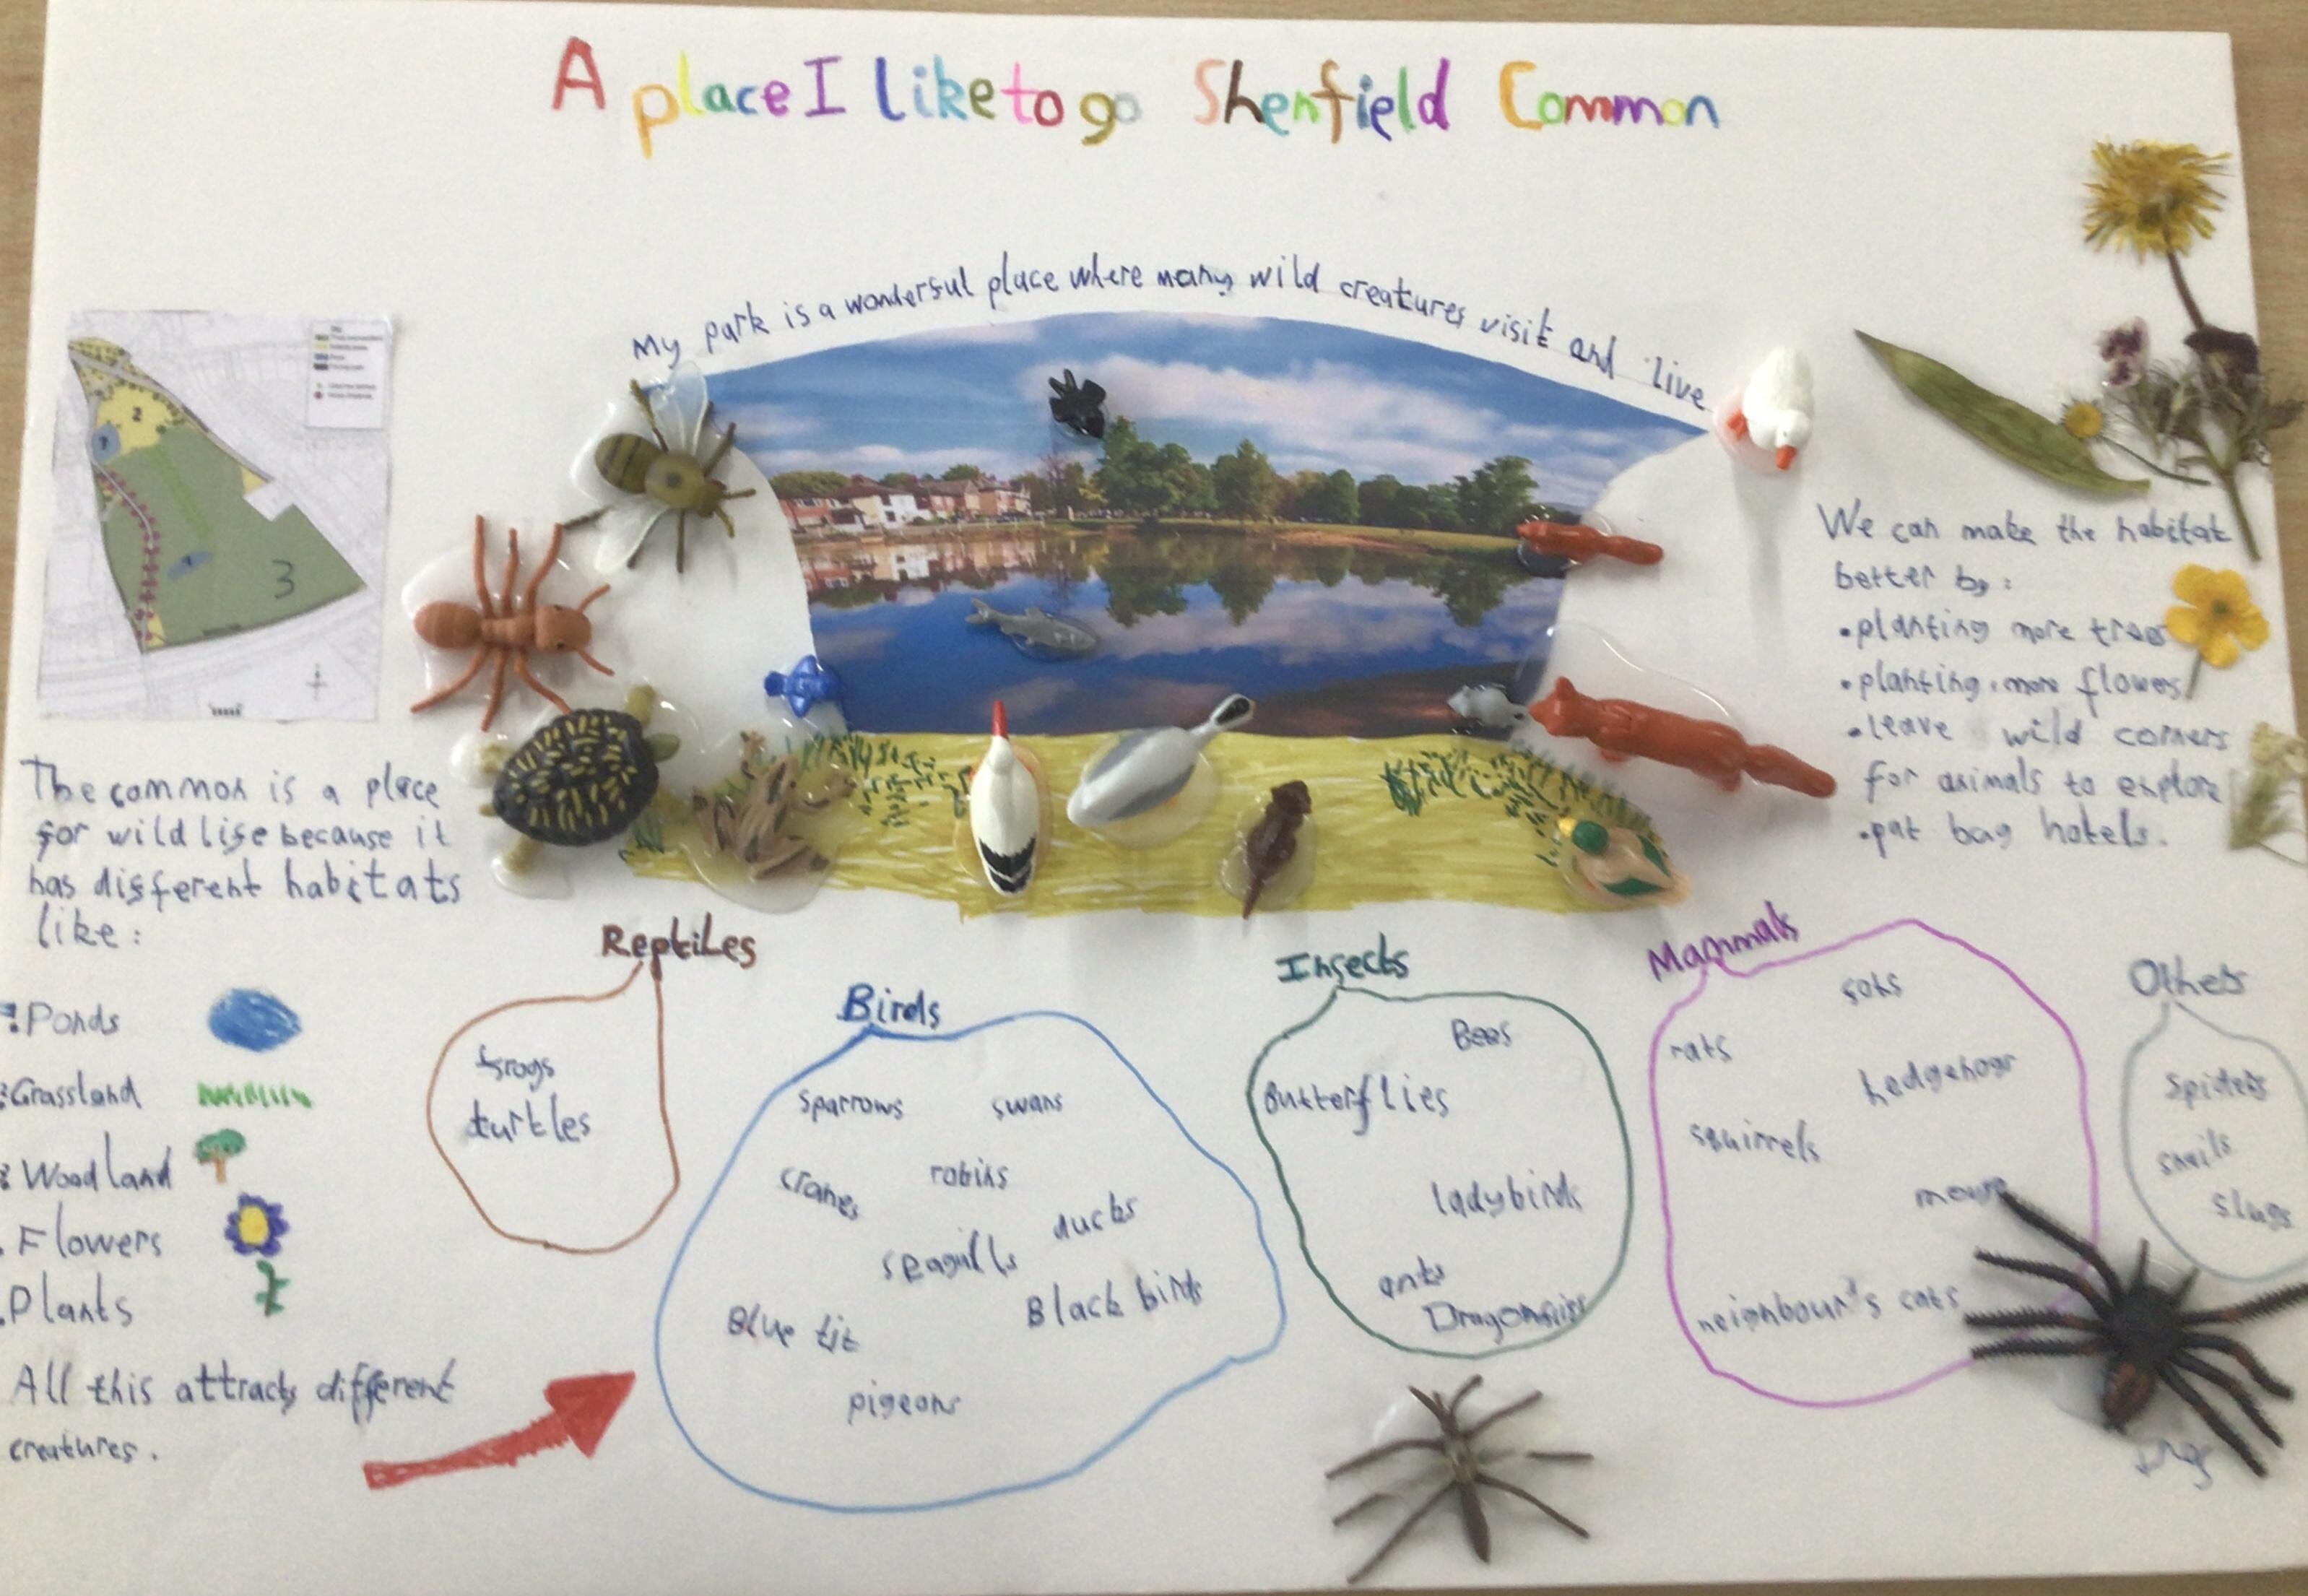 A place I like to go Shenfield Common
My park is a wonderful place where many wild creatures visit and live
2
3
We can make the habitat
better by:
• planting more trees
• planting more flowers
• leave wild corners
for animals to explore
• put bug hotels.
The common is a place
for wild life because it
has different habitats
like:
Ponds
Grassland
Woodland
Flowers
Plants
All this attracts different
creatures.
Reptiles
frogs
turtles
Birds
sparrows swans
cranes robins
ducks
seagulls
Black birds
Blue tit
pigeons
Insects
Bees
Butterflies
ladybirds
ants
Dragonflies
Mammals
rats
hedgehogs
squirrels
mouse
neighbour's cats
Others
Spiders
snails
slugs